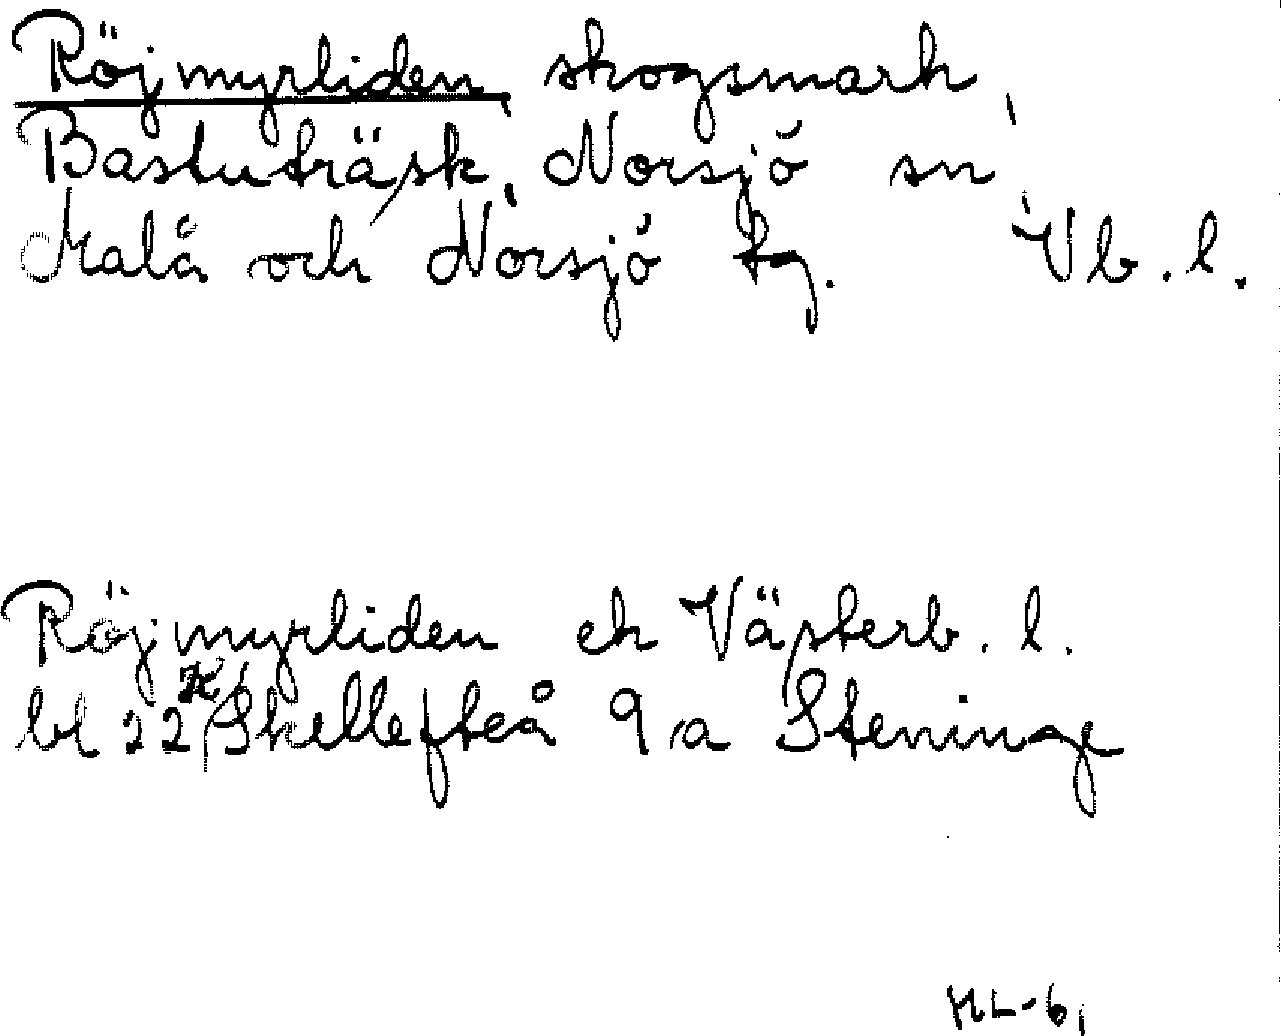 Röjmyrliden, skogsmark,
Bastuträsk, Norsjö sn,
Malå och Norsjö tg. Vb. l.
Röjmyrliden ek Västerb. l.
bl 22 K Skellefteå 9 a Steninge